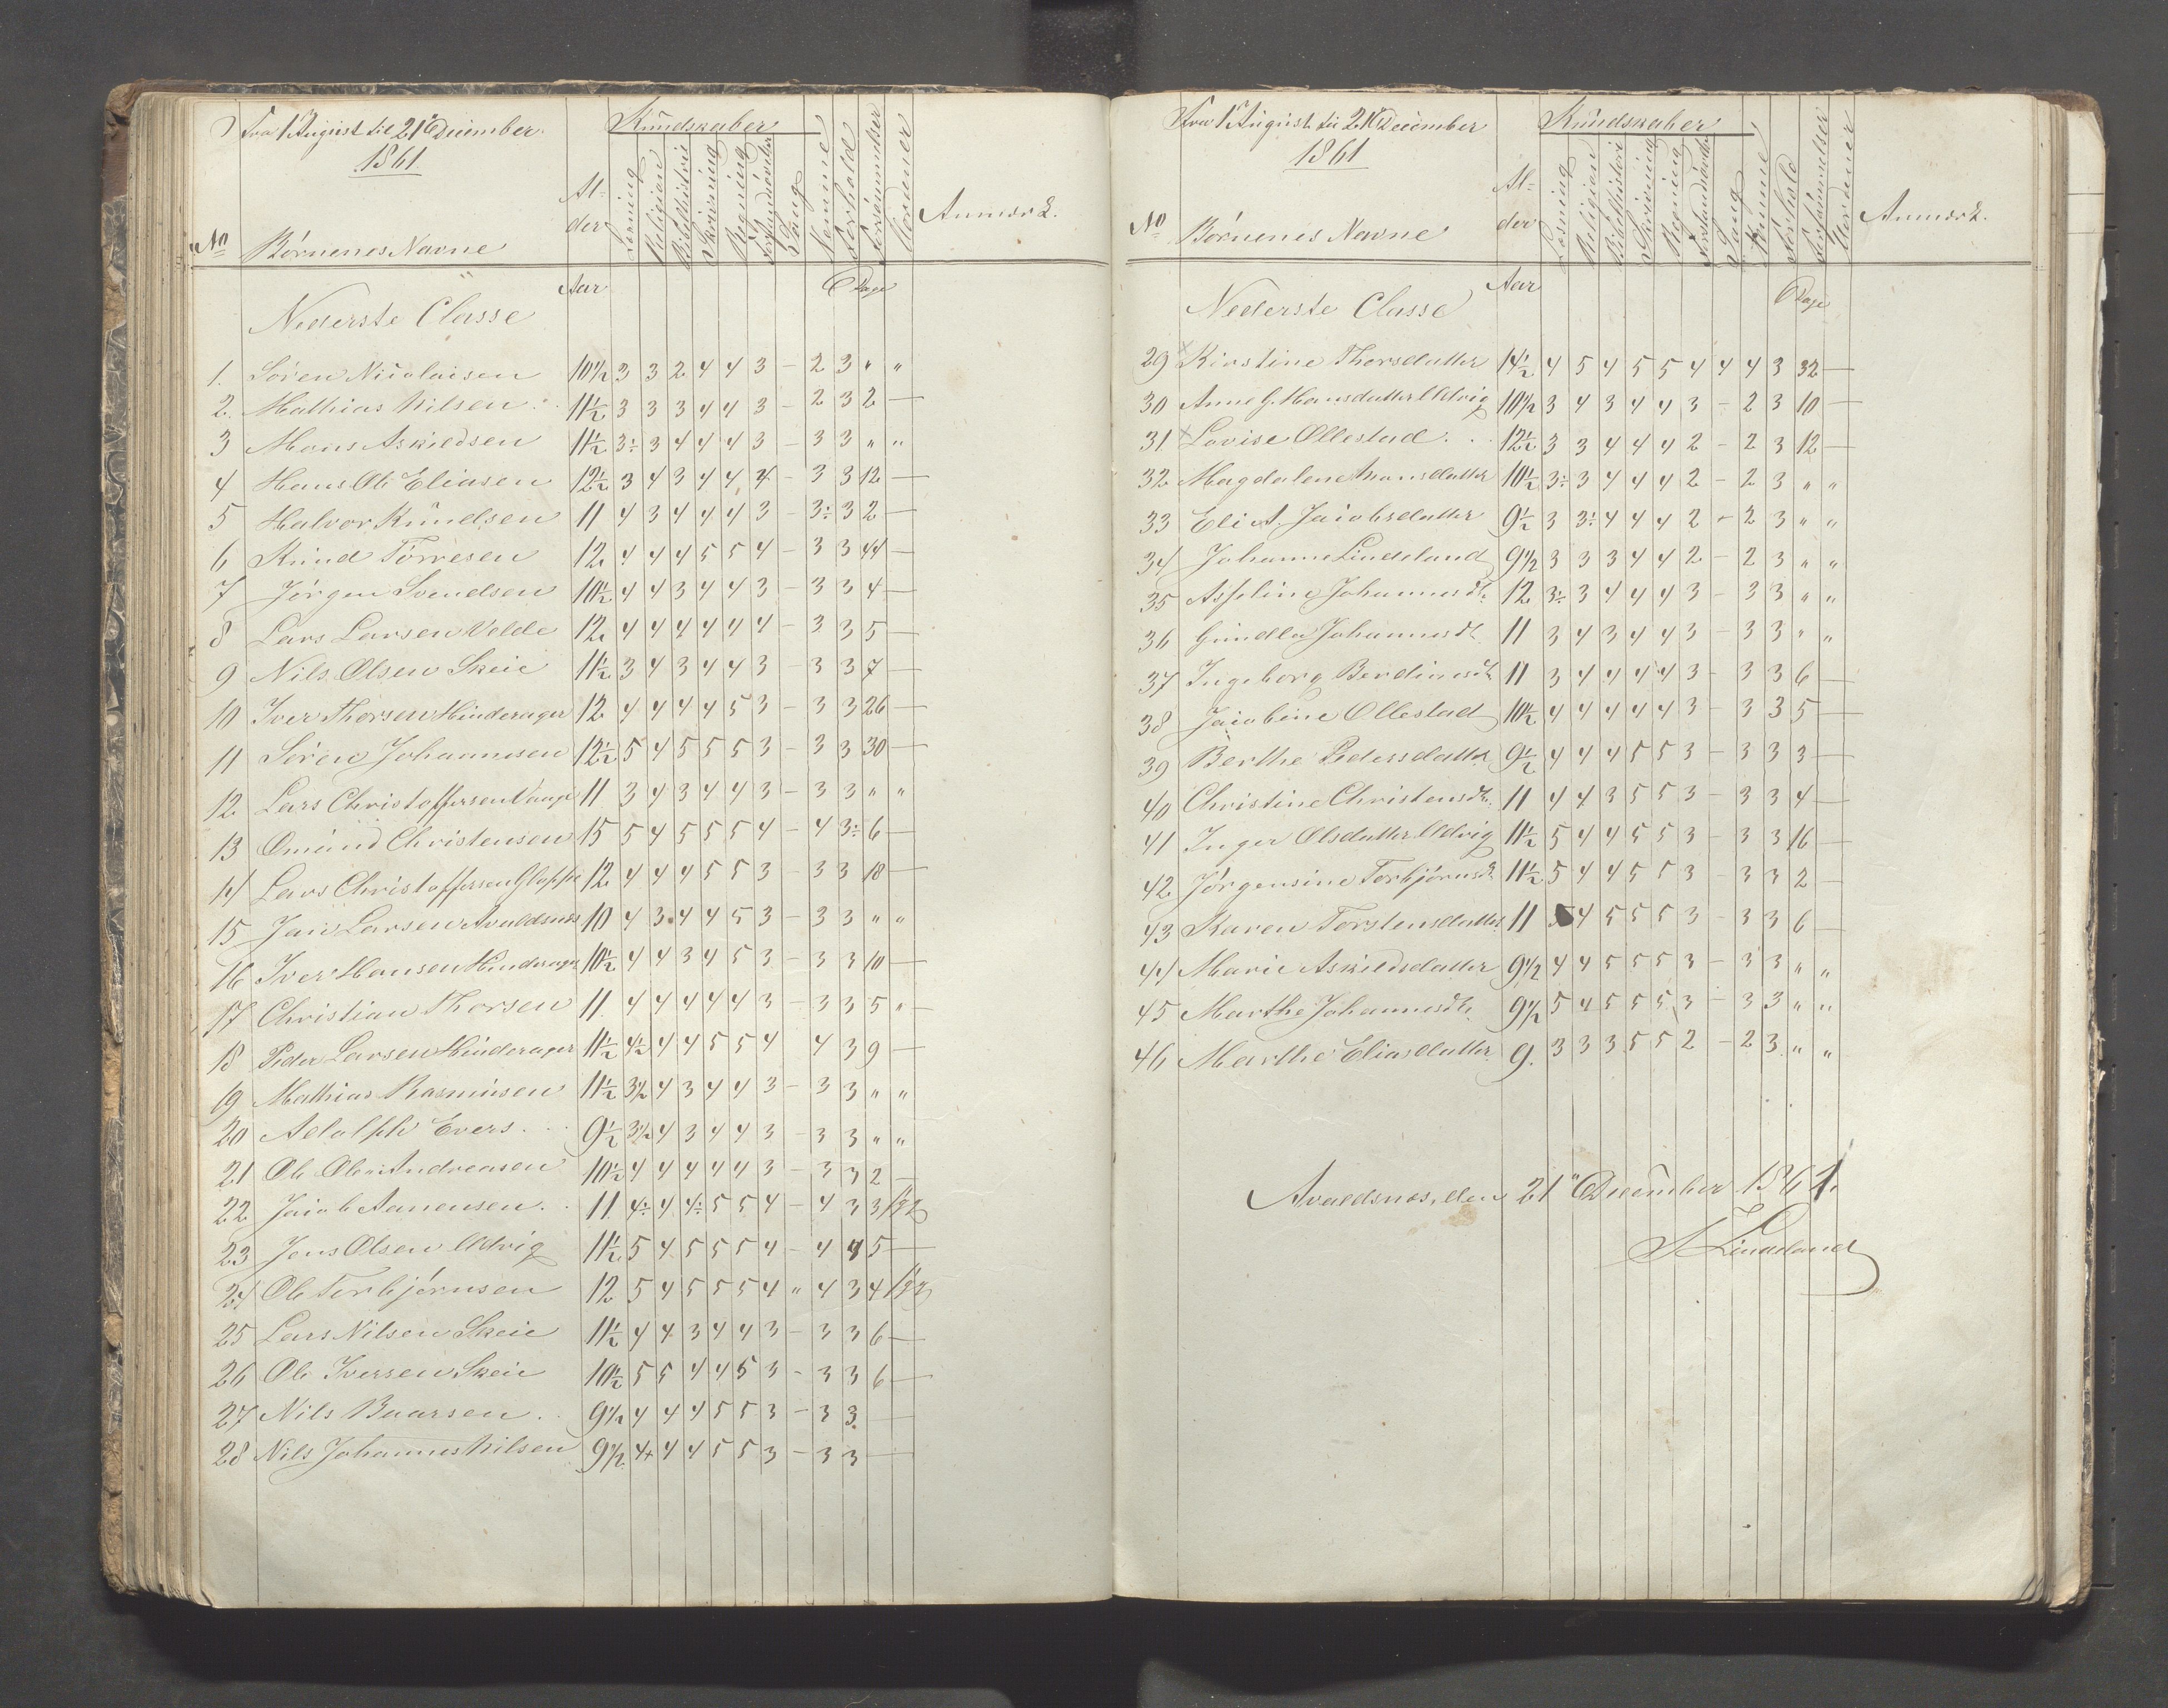 Fra 1 August til 21 December
1861.
Kundskaber
No Børnenes Navne Al-der Læsning Religion Bibelhistorie Skrivning Regning Forstandsøvelser Sang Nemme Forhold Forsømmelser Anmærk.
Aar Dage
Nederste Classe
1. Søren Nicolaisen 10 1/2 3 3 2 4 4 3 - 2 3 " "
2. Mathias Nilsen 11 1/2 3 3 3 4 4 3 - 2 3 2 —
3 Mons Askildsen 11 1/2 3÷ 3 4 4 4 3 - 3 3 " "
4 Hans Ole Eliasen 12 1/2 3 4 3 4 4 4 - 3 3 12 —
5 Halvor Knudsen 11 4 3 4 4 4 3 - 3÷ 3 2 —
6 Knud Tørresen 12 4 4 4 5 5 4 - 3 3 44 —
7 Jørgen Svendsen 10 1/2 4 4 3 4 4 3 - 3 3 4 —
8 Lars Larsen Velde 12 4 4 4 4 4 4 - 3 3 5 —
9 Nils Olsen Skeie 11 1/2 3 4 3 4 4 3 - 3 3 7 —
10 Iver Thorsen Hinderager 12 4 4 4 4 5 3 - 3 3 26 —
11 Søren Johannesen 12 1/2 5 4 5 5 5 3 - 3 3 30 —
12 Lars Christoffersen Vaage 11 3 4 3 4 4 3 - 3 3 " "
13 Omund Christensen 15 5 4 5 5 5 4 - 4 3÷ 6 —
14 Lars Christoffersen Gloppe 12 4 4 4 5 5 3 - 3 3 18 —
15 Jan Larsen Avaldsnes 10 4 3 4 4 5 3 - 3 3 " "
16 Iver Hansen Hinderager 10 1/2 4 4 3 4 5 3 - 3 3 10 —
17 Christian Thorsen 11 4 4 4 4 4 3 - 3 3 5 " —
18 Peder Larsen Hinderager 11 1/2 4 1/2 4 4 5 5 4 4 3 9 —
19 Mathias Rasmusen 11 1/2 3 1/2 4 3 4 4 3 - 3 3 " "
20 Adolph Evers 9 1/2 3 1/2 4 3 4 4 3 - 3 3 " "
21 Ole Olei Andreasen 10 1/2 4 4 4 4 4 3 - 3 3 2 —
22 Jacob Aanensen 11 4÷ 4 4÷ 5 5 4 - 4 3 3
23 Jens Olsen Udvig 11 1/2 5 4 5 5 5 4 - 4 4 5 —
24 Ole Torbjørnsen 12 5 4 5 5 5 4 " 4 3 4
25 Lars Nilsen Skeie 11 1/2 4 4 3 4 4 3 - 3 3 6 —
26 Ole Iversen Skeie 10 1/2 5 5 4 4 5 3 - 3 3 6 —
27 Nils Baarsen 9 1/2 4 4 4 5 5 3 - 3 3 —
28 Nils Johannes Nilsen 9 1/2 4 4 4 5 5 3 - 3 3 —
Fra 1 August til 21 December
1861
Kundskaber
No Børnenes Navne Al-der Læsning Religion Bibelhistori Skrivning Regning Forstandsøvelser Sang Nemme Forhold Forsømmelser Anmærk.
Aar Dage
Nederste Classe
29 Kirstine Thorsdatter 14 1/2 4 5 4 5 5 4 4 4 3 32 —
30 Anne G. Hansdatter Udvig 10 1/2 3 4 3 4 4 3 - 2 3 10 —
31 Lovise Ollestad 12 1/2 3 3 4 4 4 2 - 2 3 12 —
32 Magdalene Monsdatter 10 1/2 3÷ 3 4 4 4 2 - 2 3 " "
33 Eli A. Jacobsdatter 9 1/2 3 3÷ 4 4 4 2 - 2 3 " "
34 Johanne Lindeland 9 1/2 3 3 3 4 4 2 - 2 3 " "
35 Asseline Johannesdt. 12 3÷ 3 4 4 4 3 - 3 3 " "
36 Gundla Johannesdt 11 3 4 3 4 4 3 - 3 3 " "
37 Ingeborg Berdinesdt 11 3 4 4 4 4 3 - 3 3 6 —
38 Jacobine Ollestad 10 1/2 4 4 4 4 4 3 - 3 3 5 —
39 Berthe Pedersdatter 9 1/2 4 4 4 5 5 3 - 3 3 3 —
40 Christine Christensdt. 11 4 4 3 5 5 3 - 3 3 4 —
41 Inger Olsdatter Udvig 11 1/2 5 4 4 5 5 3 - 3 3 16 —
42 Jørgensine Torbjørnsdt 11 1/2 5 4 4 5 5 3 - 3 3 2 —
43 Karen Torstensdatter 11 5 4 5 5 5 3 - 3 3 6 —
44 Marie Askildsdatter 9 1/2 4 4 5 5 5 3 - 3 3 " "
45 Marthe Johannesdt. 9 1/2 5 4 5 5 5 3 - 3 3 " "
46 Marthe Eliasdatter 9. 3 3 3 5 5 2 - 2 3 " "
Avaldsnes, den 21" December 1861.
Lindeland